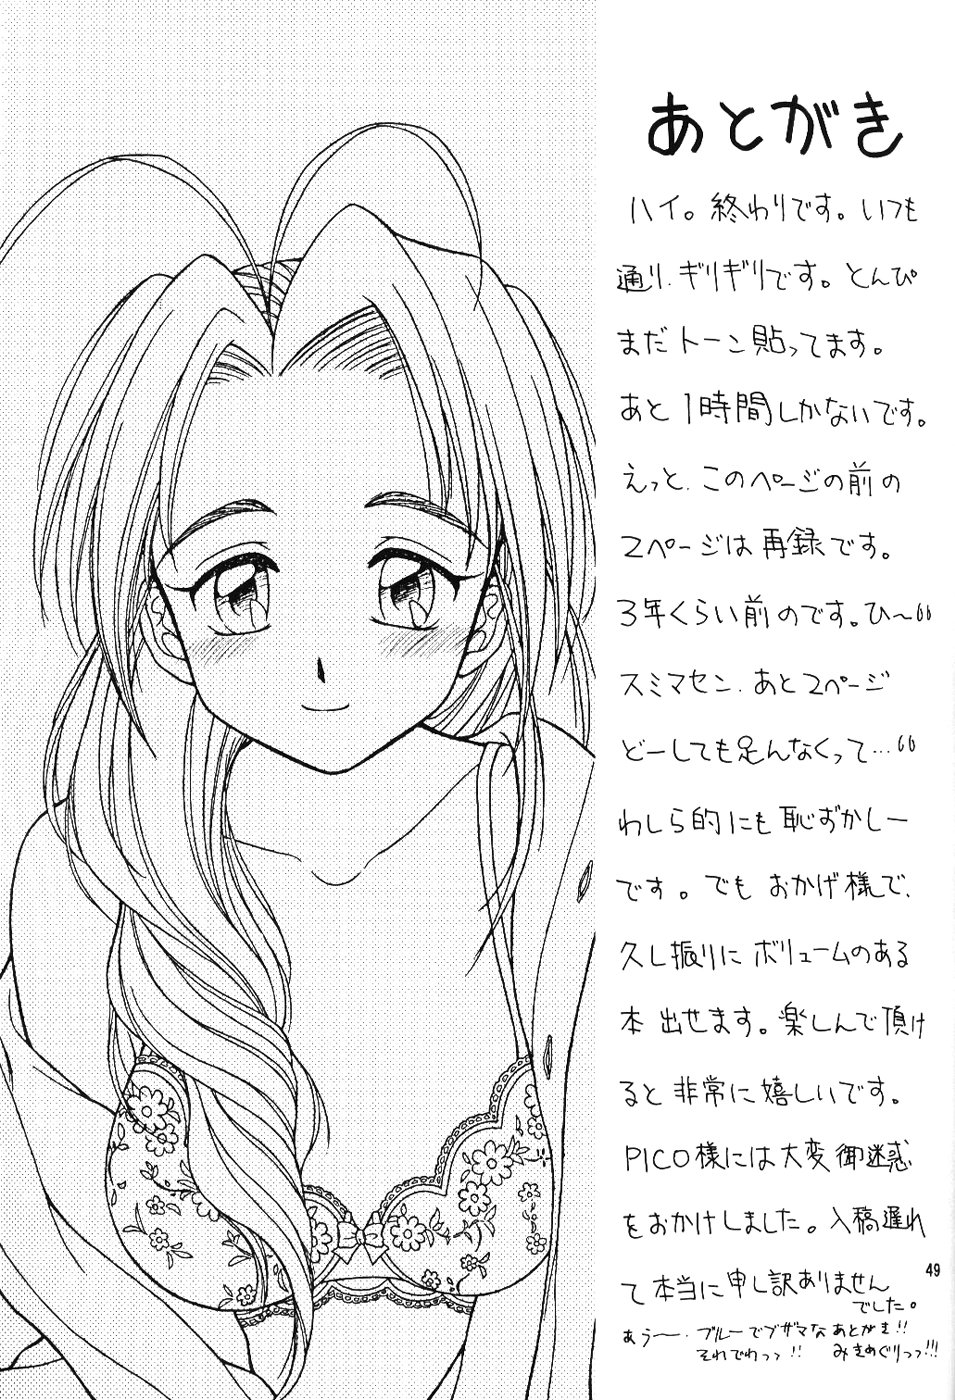 あとがき
ハイ。終わりです。いつも
通り、ギリギリです。とんぴ
まだトーン貼ってます。
あと1時間しかないです。
えっと、このページの前の
2ページは再録です。
3年くらい前のです。ひ〜〃
スミマセン、あと2ページ
どーしても足んなくって…〃
わしら的にも恥ずかしー
です。でもおかげ様で、
久し振りにボリュームのある
本出せます。楽しんで頂け
ると非常に嬉しいです。
PICO様には大変御迷惑
をおかけしました。入稿遅れ
て本当に申し訳ありません
でした。
あぅ〜、ブルーでブザマなあとがき!!
それでわっっ!! みきめぐりっっ!!!
49